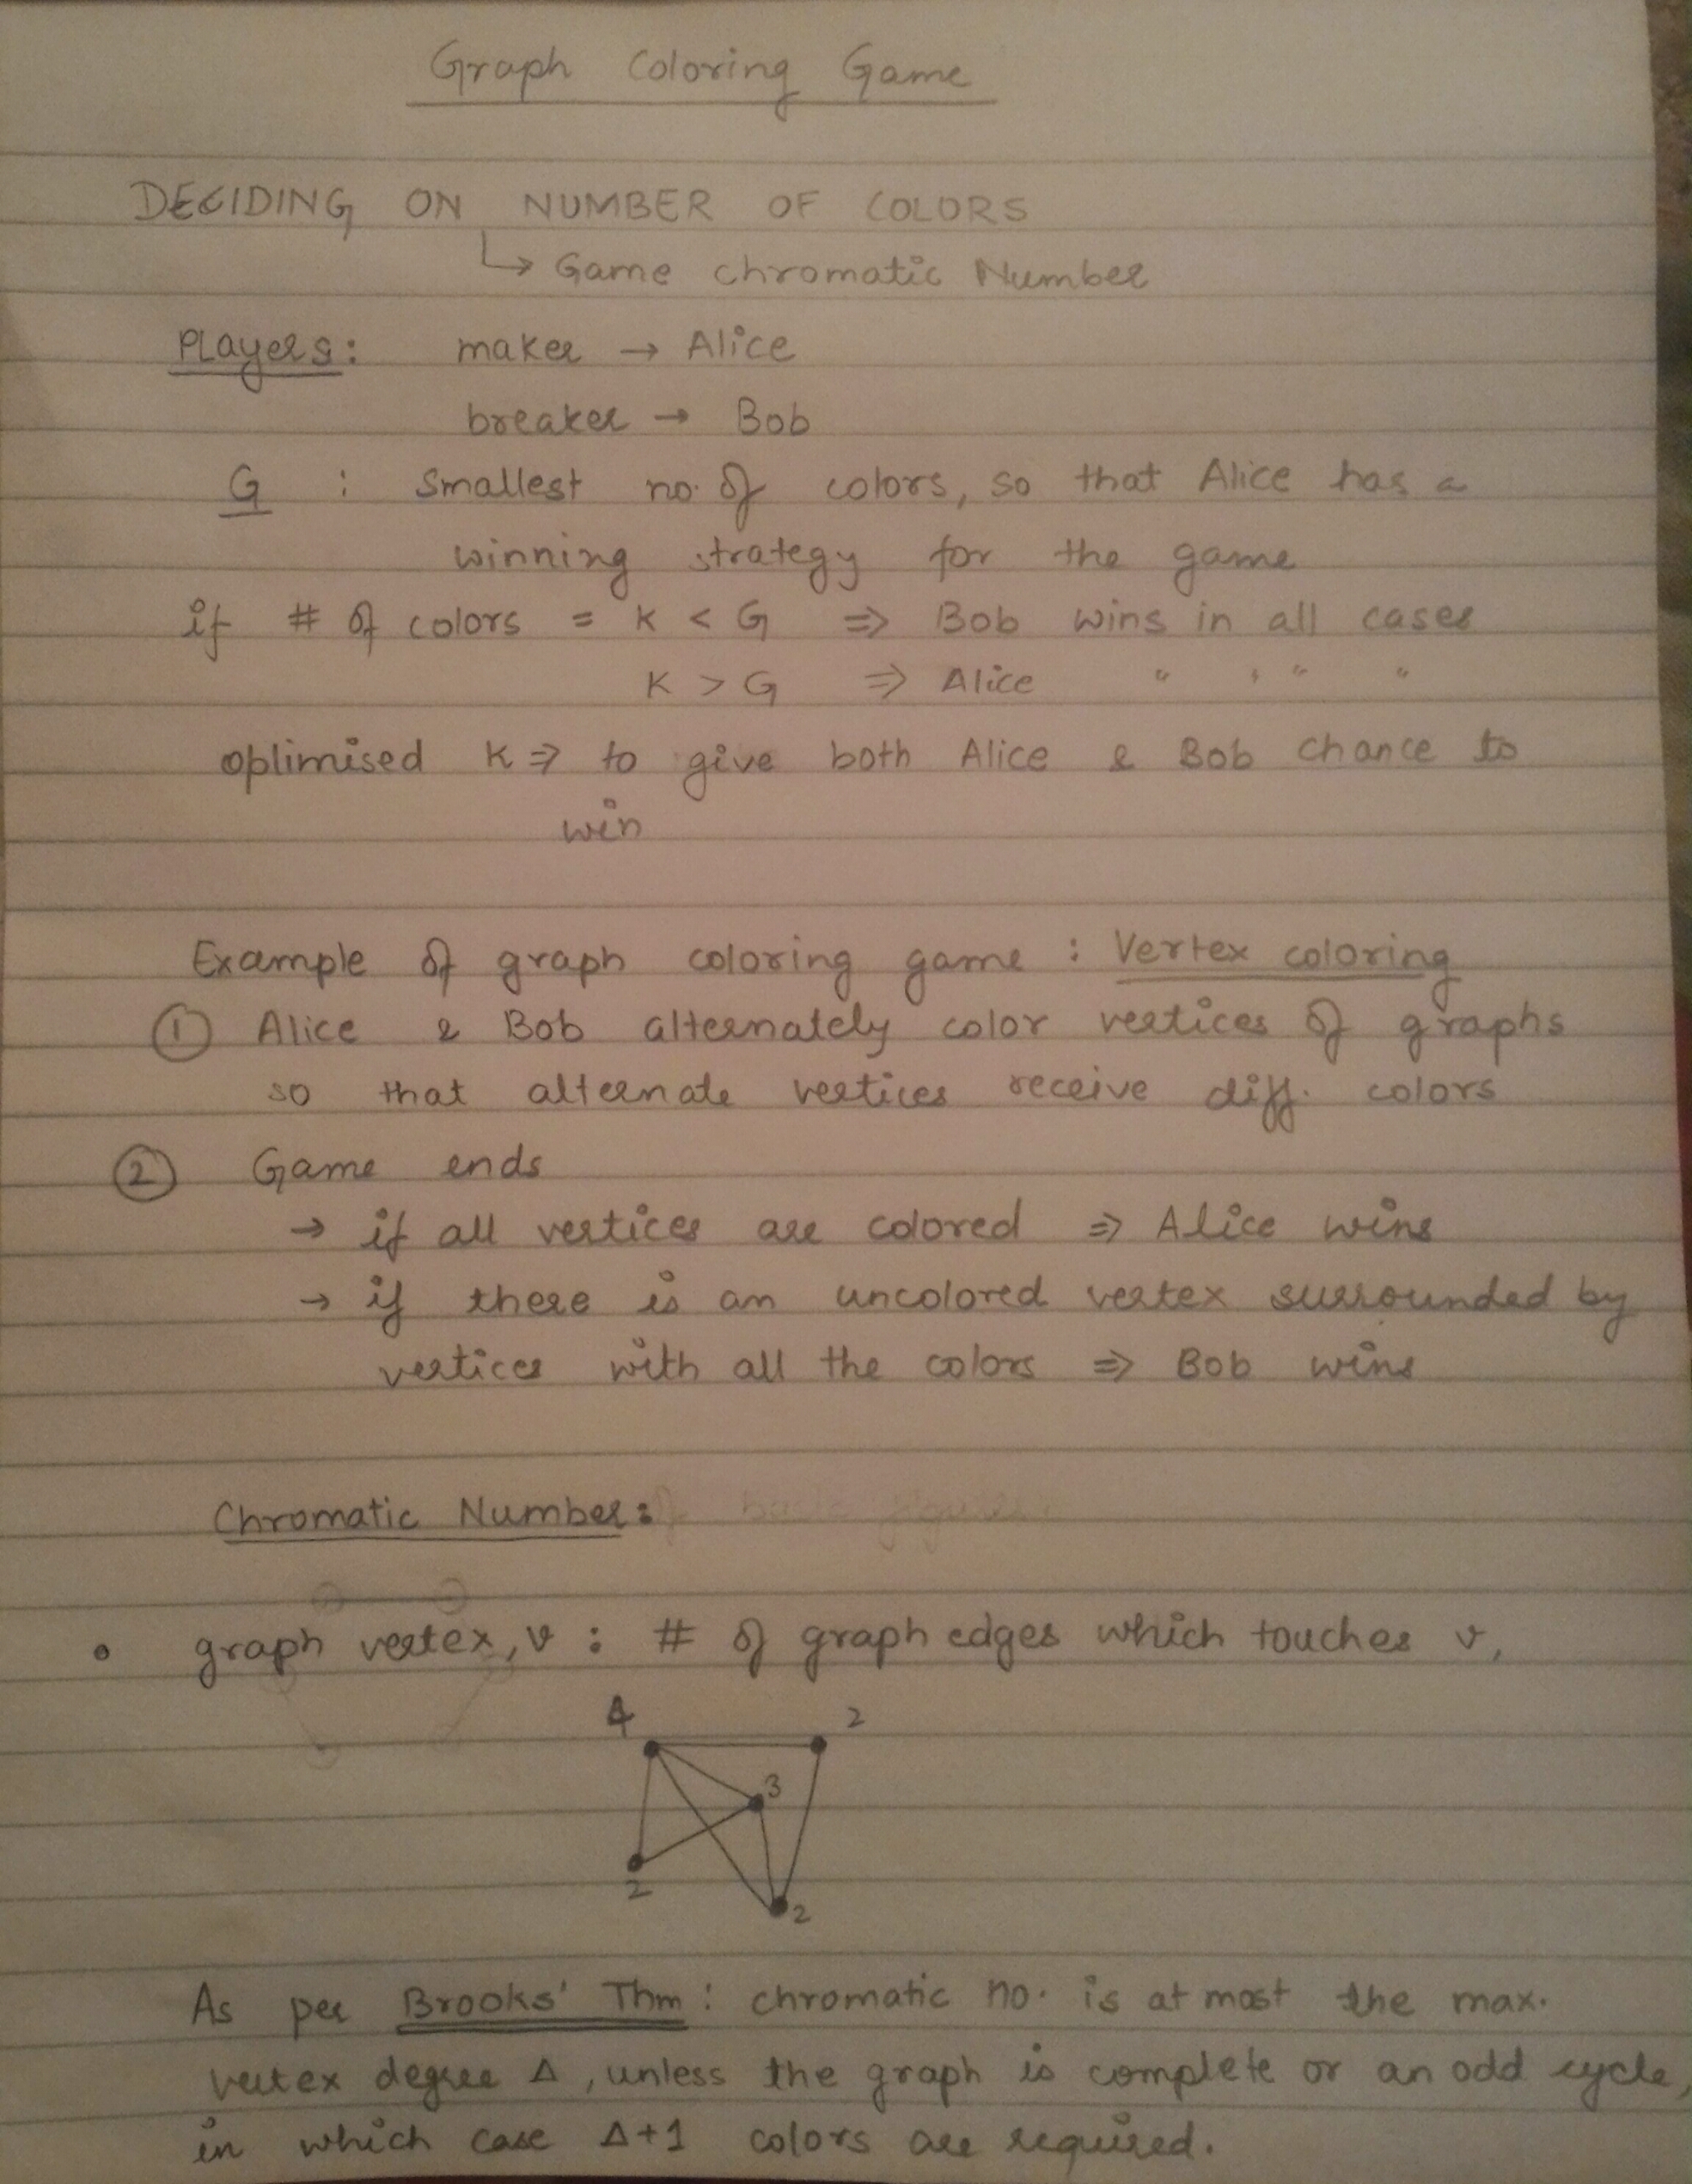 Graph Coloring Game
DECIDING ON NUMBER OF COLORS
↳ Game chromatic Number
PLayers: maker → Alice
breaker → Bob
G : Smallest no. of colors, so that Alice has a
winning strategy for the game
if # of colors = K < G ⇒ Bob wins in all cases
K > G ⇒ Alice " " " "
optimised K ⇒ to give both Alice & Bob chance to
win
Example of graph coloring game : Vertex coloring
① Alice & Bob alternately color vertices of graphs
so that alternate vertices receive diff. colors
② Game ends
→ if all vertices are colored ⇒ Alice wins
→ if there is an uncolored vertex surrounded by
vertices with all the colors ⇒ Bob wins
Chromatic Number:
• graph vertex, v : # of graph edges which touches v,
4 2
3
2
2
As per Brooks' Thm : chromatic no. is at most the max.
vertex degree Δ, unless the graph is complete or an odd cycle,
in which case Δ+1 colors are required.